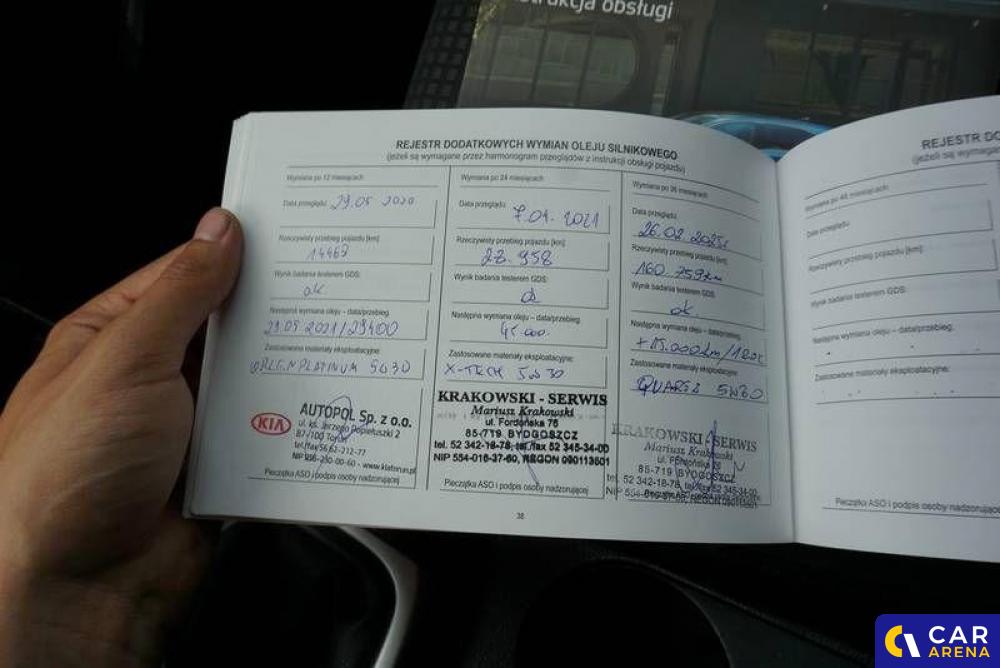 strukcja obsługi
REJESTR DODATKOWYCH WYMIAN OLEJU SILNIKOWEGO
(jeżeli są wymagane przez harmonogram przeglądów z instrukcji obsługi pojazdu)
Wymiana po 12 miesiącach
Data przeglądu: 29.05 2020
Rzeczywisty przebieg pojazdu [km]:
14467
Wynik badania testerem GDS:
ok
Następna wymiana oleju – data/przebieg:
29.05 2021/29400
Zastosowane materiały eksploatacyjne:
PLATINUM 5W30
KIA
AUTOPOL Sp. z o.o.
ul. ks. Jerzego Popiełuszki 2
87-100 Toruń
Pieczątka ASO i podpis osoby nadzorującej
Wymiana po 24 miesiącach
Data przeglądu: 7.01.2021
Rzeczywisty przebieg pojazdu [km]:
28.958
Wynik badania testerem GDS:
ok
Następna wymiana oleju – data/przebieg:
Zastosowane materiały eksploatacyjne:
X-TECH 5W30
KRAKOWSKI - SERWIS
Mariusz Krakowski
ul. Fordońska 76
85-719 BYDGOSZCZ
tel. 52 342-18-78, tel./fax 52 345-34-00
NIP 554-016-37-60, REGON 090113601
Pieczątka ASO i podpis osoby nadzorującej
Wymiana po 36 miesiącach
Data przeglądu:
26.02.2025r
Rzeczywisty przebieg pojazdu [km]:
160.759km
Wynik badania testerem GDS:
ok.
Następna wymiana oleju – data/przebieg:
+15.000km/1rok
Zastosowane materiały eksploatacyjne:
5W30
KRAKOWSKI - SERWIS
Mariusz Krakowski
ul. Fordońska 76
85-719 BYDGOSZCZ
tel. 52 342-18-78, tel./fax 52 345-34-00
38
REJESTR DO
(jeżeli są wymagane
Wymiana po 48 miesiącach
Data przeglądu:
Rzeczywisty przebieg pojazdu [km]:
Wynik badania testerem GDS:
Następna wymiana oleju – data/przebieg:
Zastosowane materiały eksploatacyjne:
Pieczątka ASO i podpis osoby nadzorując
CAR
ARENA